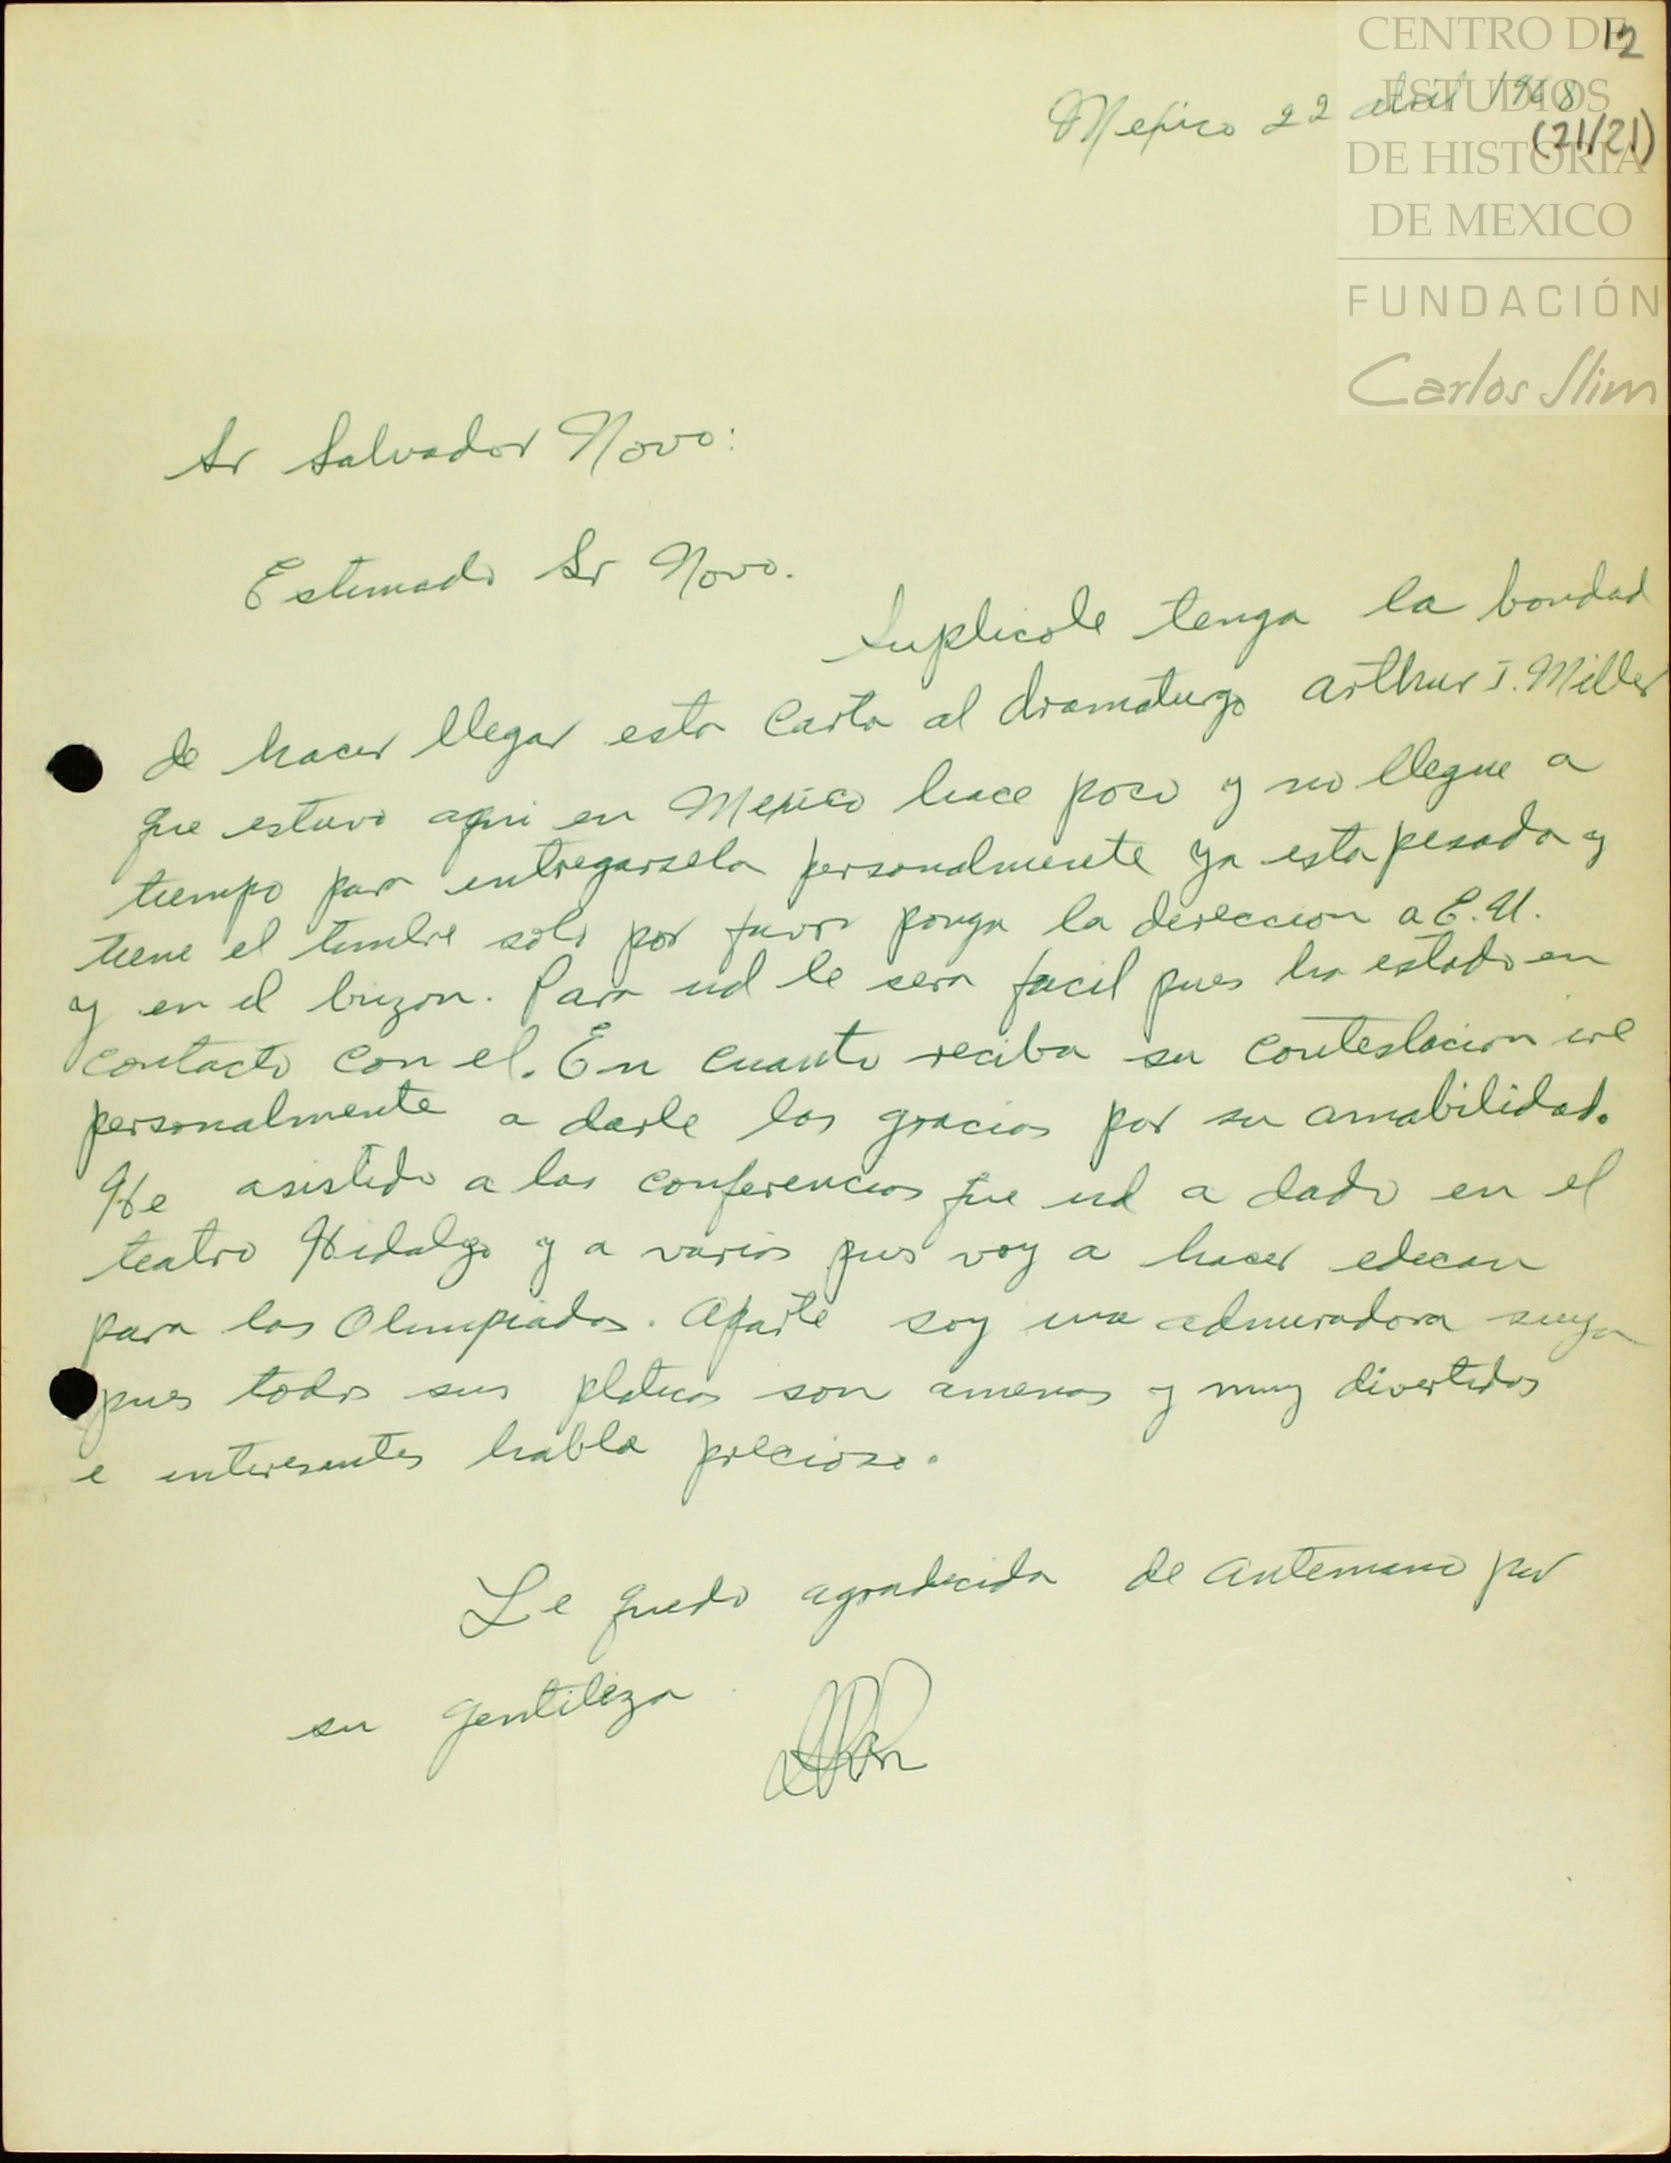 12
Mexico 22 abril 1968
(21/21)
CENTRO DE
ESTUDIOS
DE HISTORIA
DE MEXICO
FUNDACIÓN
Carlos Slim
Sr Salvador Novo:
Estimado Sr Novo.
Suplicole tenga la bondad
de hacer llegar esta carta al dramaturgo Arthur I. Miller
que estuvo aqui en Mexico hace poco y no llegue a
tiempo para entregarsela personalmente ya esta pesada y
tiene el timbre solo por favor ponga la direccion a E.U.
y en el buzon. Para ud le sera facil pues ha estado en
contacto con el. En cuanto reciba su contestacion ire
personalmente a darle las gracias por su amabilidad.
He asistido a las conferencias que ud a dado en el
teatro Hidalgo y a varios pues voy a hacer edecan
para las Olimpiadas. Aparte soy una admiradora suya
pues todas sus platicas son amenas y muy divertidas
e interesantes habla precioso.
Le quedo agradecida de antemano por
su gentileza.